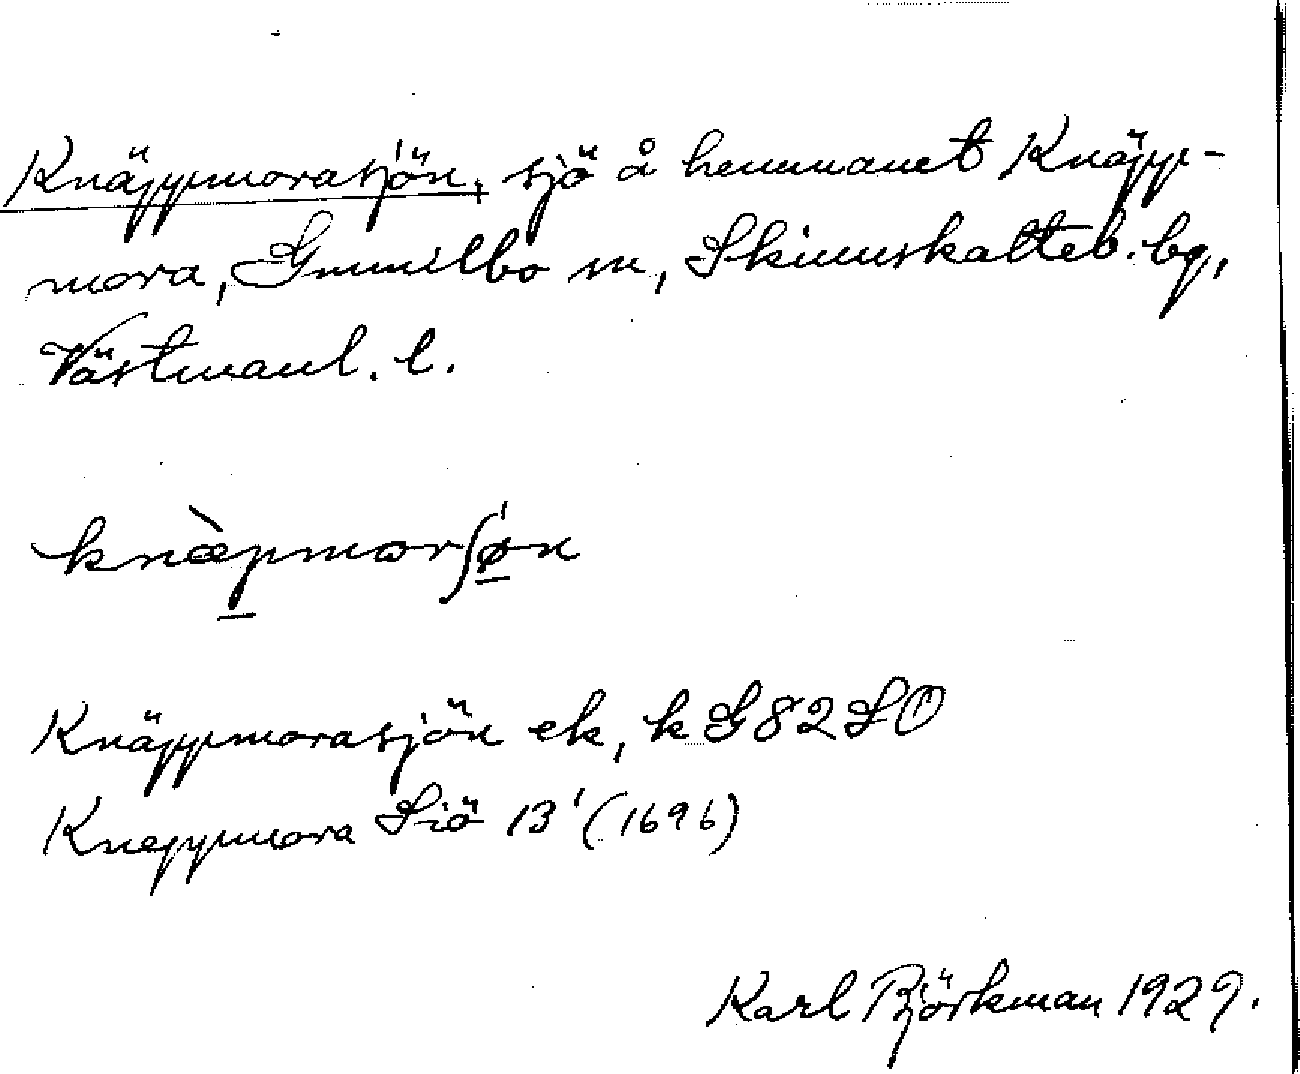 Knäppmorasjön, sjö å hemmanet Knäpp-
mora, Gunnilbo sn, Skinnskatteb. bg,
Västmanl. l.
knæ̀pmorʃø̍n
Knäppmorasjön ek, k G 82 SO
Kneppmora Siö 13' (1696)
Karl Björkman 1929.